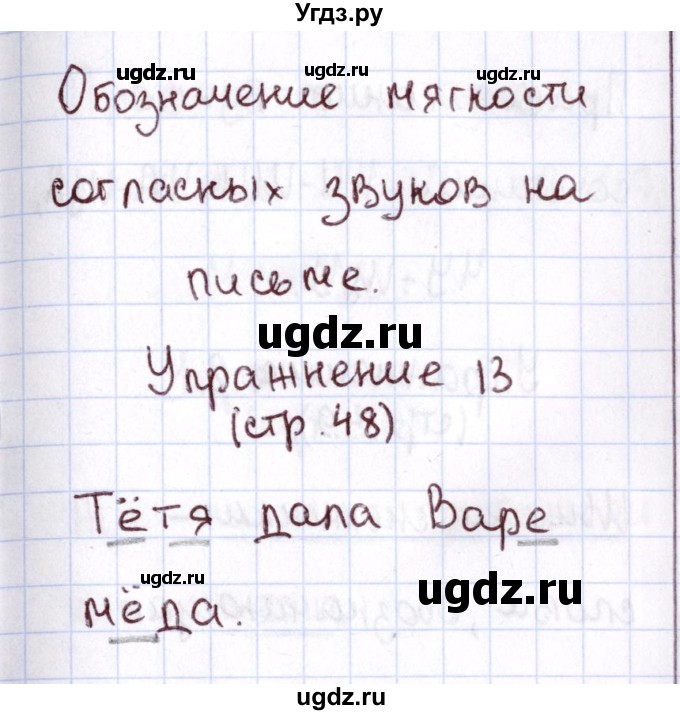 Угдз.ру
ugdz.ru ugdz.ru ugdz.ru
Обозначение мягкости
согласных звуков на
письме.
ugdz.ru
Упражнение 13
(стр. 48)
Тётя дала Варе
ugdz.ru ugdz.ru
мёда.
ugdz.ru